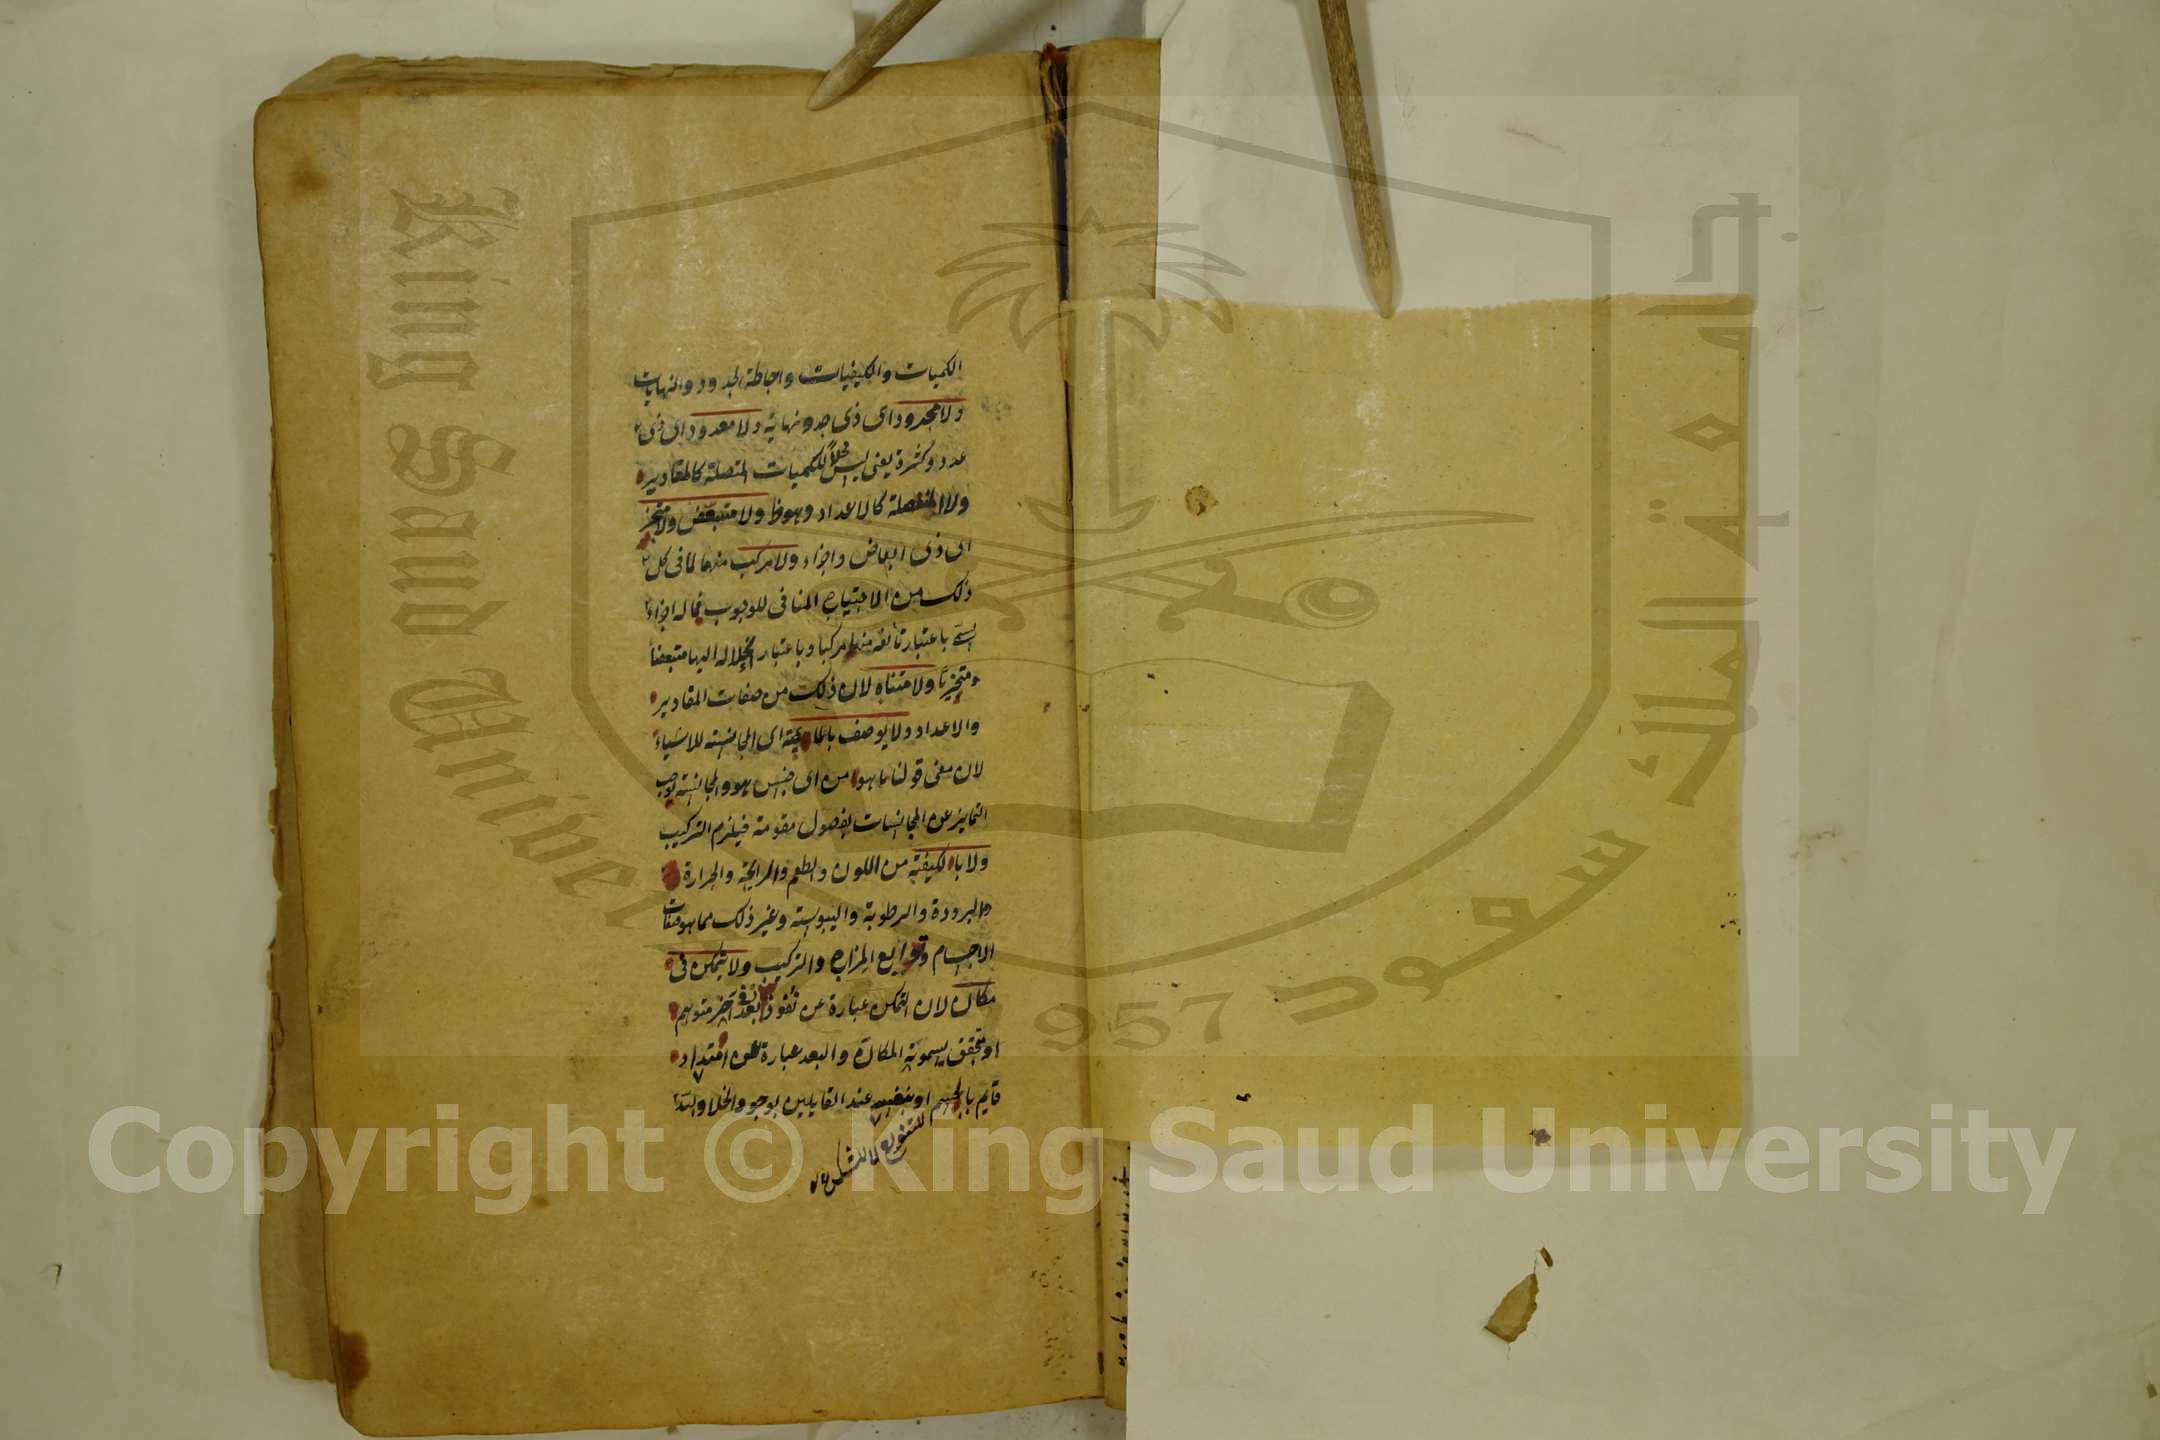 الكميات والكيفيات واحاطة الحدود والنهايات
ولا محدود اى ذى حد ونهاية ولا معدود اى ذى
عدد وكثرة يعنى ليس محلا للكميات المتصلة كالمقادير
ولا المنفصلة كالاعداد وهو ظ ولا متبعض ولا متجز
اى ذى ابعاض واجزاء ولا مركب منها لما فى كل
ذلك من الاحتياج المنافى للوجوب فما له اجزاء
يسمى باعتبار تألفه منها مركبا وباعتبار انحلاله اليها متبعضا
ومتجزيا ولا متناه لان ذلك من صفات المقادير
والاعداد ولا يوصف بالماهية اى المجانسة للاشياء
لان معنى قولنا ما هو من اى جنس هو والمجانسة توجب
التمايز عن المجانسات بفصول مقومة فيلزم التركيب
ولا بالكيفية من اللون والطعم والرايحة والحرارة
والبرودة والرطوبة واليبوسة وغير ذلك مما هو صفات
الاجسام وتوابع المزاج والتركيب ولا يتمكن فى
مكان لان التمكن عبارة عن نفوذ بعد فى آخر متوهم
او متحقق يسمونه المكان والبعد عبارة عن امتداد
قايم بالجسم او بنفسه عند القايلين بوجود الخلا والله
للتنويع لا للشك
King Saud University
جامعة الملك سعود
1957
Copyright © King Saud University